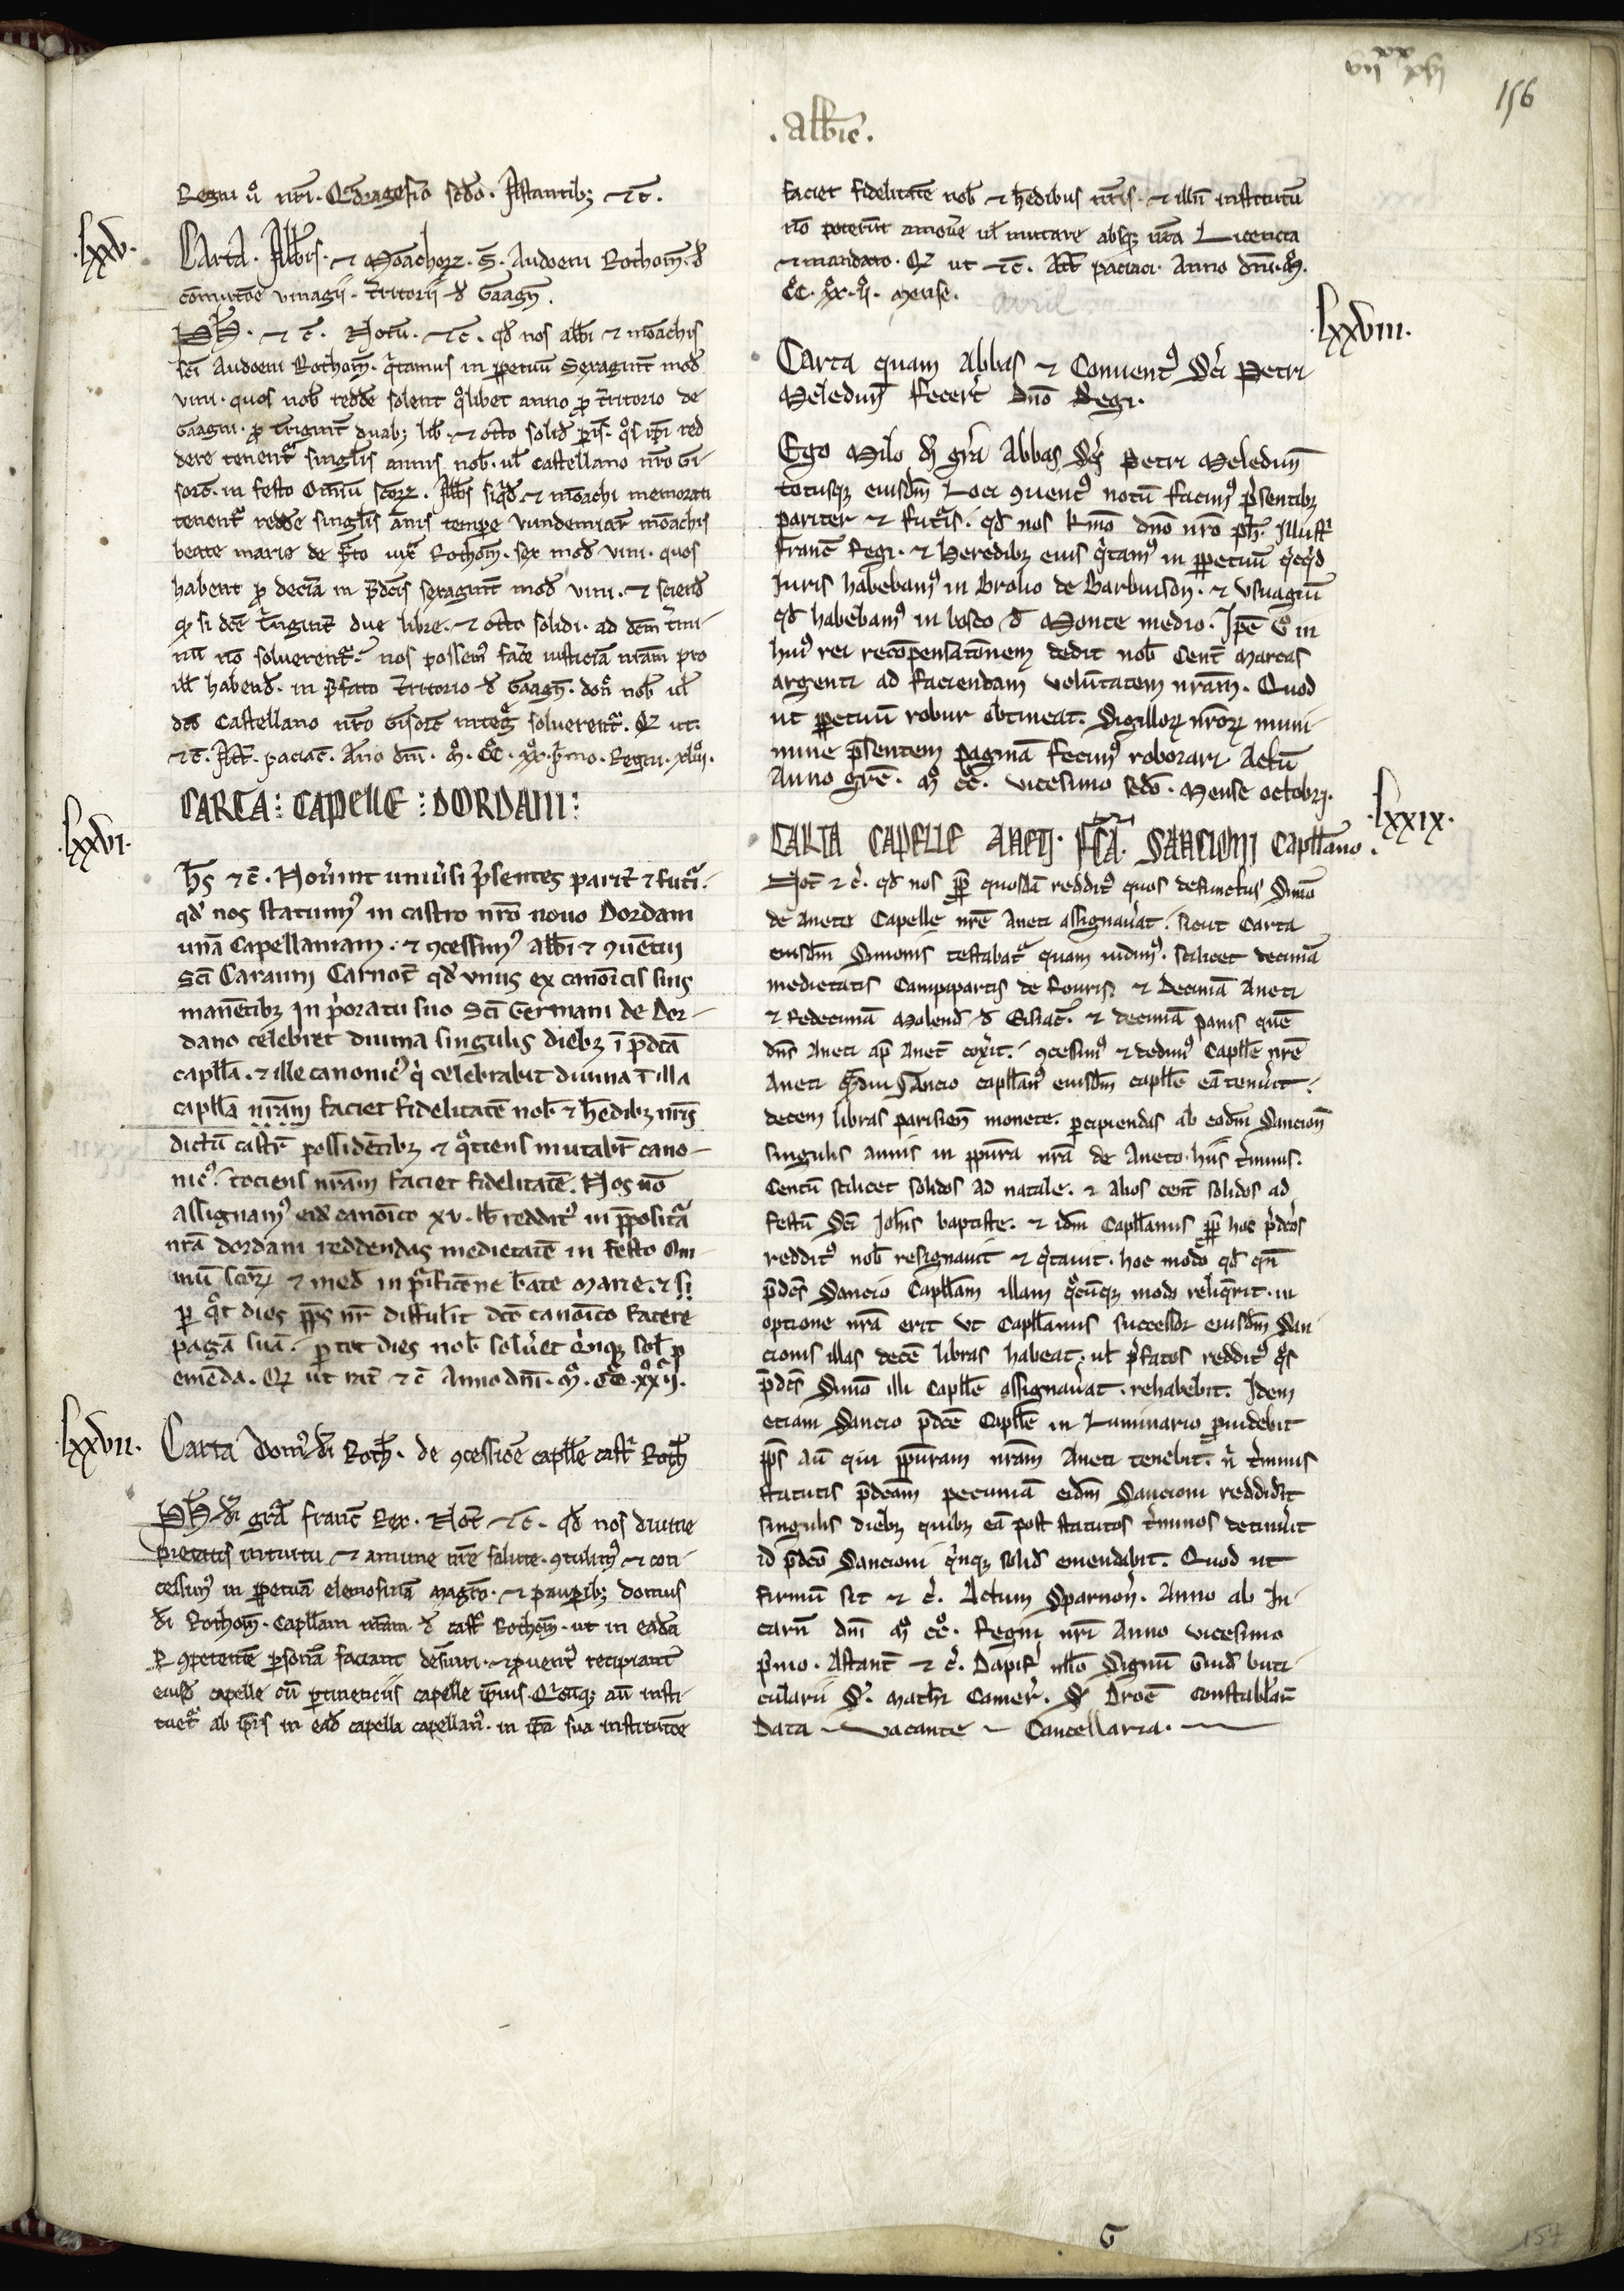 156
.Abb̄ie.
Regni u̾ nr̄i. Qͣdragesīo sc̄do. Astantibꝫ ⁊c̄.
.lxxv.
Carta. Abb̄is. ⁊ Mōachoꝝ. S̄. Audoeni Rothom̄. d̄
cōmutōe vinagii. t̄ritorii d̄ Gaagn̄.
PH̄. ⁊ c̄. Notū. ⁊c̄. qd̄ nos abb̄i ⁊ mōachis
sc̄i Audoeni Rothom̄. qͥtamus in ꝑpetuū Sexagint̄ mod̄
vini. quos nob̄ redd̄e solent qͦlibet anno ꝓ t̄ritorio de
Gaagni. ꝓ trigint̄ duabꝫ lib̄. ⁊ octo solid̄ pīs. qͦs ip̄i red
dere tenent̾ singl̄is annis nob̄. ul̄ castellano nr̄o Gi-
sorc̄. in festo Om̄iū sc̄oꝝ. Abb̄s siqͥd̄ ⁊ mōachi memorati
tenent̾ redd̄e singl̄is ānis tempe vindemiaꝝ mōachis
beate marie de p̄to iuxͣ Rothom̄. sex mod̄ vini. quos
habent ꝓ decīa in p̄dc̄is sexagint̄ mod̄ vini. ⁊ sciend̄
qͩ si dc̄e trigint̄ due libre. ⁊ octo solidi. ad dc̄m t̄mi-
nū nō soluerent̾. nos possem̾ fac̄e iusticiā nr̄am pro
ill̄ habend̄. in p̄fato t̄ritorio d̄ Gaagn̄. don̄ nob̄ ul̄
dc̄o Castellano nr̄o Gisorc̄ integͣ soluerent̾. Qͩ ut.
⁊c̄. Act̄. paciac̄. Āno dn̄i. Mͦ. CͦC. xxͦ. p̄mo. Regni. xliiiͦ.
.lxxvi.
CARTA: CAPELLE: DORDANI:
P̄hs ⁊ c̄. Nou̾int uniu̾si p̄sentes parit̾ ⁊ futi̾.
qd̄ nos statuim̾ in castro nr̄o nouo Dordani
unā Capellaniam. ⁊ ꝯcessim̾ abb̄i ⁊ ꝯuētui
Sc̄i Carauni Carnot̄ qd̄ vnus ex canōicis suis
manētibꝫ in p̾oratu suo Sc̄i Germani de Dor-
dano celebret diuina singulis diebꝫ ī p̄dc̄a
capll̄a. ⁊ ille canonic̾ qͥ celebrabit diuina ī illa
capll̄a nr̄am faciet fidelitatē nob̄ ⁊ h̄edibꝫ nr̄is
dictū castr̄ possidētibꝫ ⁊ qͦtiens mutabit̾ cano-
nic̾. tociens nr̄am faciet fidelitatē. Nos uō
assignam̾ eid̄ canōico xv. lb̄ reddit̾ in ꝑpositͣā
nr̄ā dordani reddendas medietatē in festo Om-
niū sc̄oꝝ ⁊ med̄ in pͥficat̄ne b̄ate Marie. ⁊ si
ꝑ qͦt dies ꝑps̄ nr̄ distul̄it dc̄o canōico facere
pagā suā. ꝑ tot dies nob̄ solu̾et qͥnqꝫ sol̄ ꝓ
emēda. Qͩ ut rat̄ ⁊ c̄ Anno dn̄i. Mͦ. CͦC. xxͦijͦ.
.lxxvii.
Carta Dom̾ dī Roth̄. de ꝯcessiōe capll̄e cast̾ Roth̄
PH̄ dī grā franc̄ Rex. Not̄ ⁊c̄. qd̄ nos diuine
pietatis intuitu ⁊ anime nr̄e salute. ꝯtulim̾ ⁊ con-
cessim̾ in ꝑpetuā elemosinā magr̄o. ⁊ pauꝑibꝫ domus
dī Rothom̄. capll̄am nr̄am d̄ cast̾ Rothom̄. ut in eadē
ꝑ ꝯpetentē ꝑsonā faciant des̾uiri. ⁊ ꝓuent̾ recipiant
eiusd̄ capelle cū ꝑtinenciis capelle ip̄ius. Qͥcūqꝫ aū insti-
tuet̾ ab ip̄is in ead̄ capella capellan̾. in ip̄a sua institutōe
faciet fidelitatē nob̄ ⁊ h̄edibus nr̄is. ⁊ illū institutū
nō poterūt amou̾e ul̄ mutare absqꝫ nr̄a Licencia
⁊ mandato. Qͩ ut ⁊c̄. Act̄ paciaci. Anno dn̄i. Mͦ.
CͦC. xxͦ. ijͦ. Mense. avril.
.lxxviii.
Carta quam Abbas ⁊ Conuent̾ Sc̄i Petri
Meledun̄ fecer̄t dn̄o Regi.
Ego Milo dī gr̄a Abbas Sc̄i Petri Meledun̄
totusqꝫ eiusdm̄ Loci ꝯuent̾ notū facim̾ p̄sentibꝫ
pariter ⁊ futͥs. qd̄ nos kͬmo dn̄o nr̄o ph̄. Illustͥ
Franc̄ Regi. ⁊ Heredibꝫ eius qͥtam̾ in ꝑpetuū qͥcqͥd
Iuris habebam̾ in Brolio de Barbuison. ⁊ vsuagiū
qd̄ habebam̾ in bosco d̄ Monte medio. Ip̄e uͦ in
hui̾ rei recōpensatōnem dedit nob̄ Cent̄ Marcas
argenti ad faciendam volūtatem nr̄am. Quod
ut ꝑpetuū robur obtineat. Sigilloꝝ nr̄oꝝ muni-
mine p̄sentem paginā fecim̾ roborari Actū
Anno grē. Mͦ CͦC. vicesimo sc̄do. Mense octobrj.
.lxxix.
CARTA CAPELLE ANETI. FCͣA. SANCIONI Capll̄ano.
Not̄ ⁊ c̄. qd̄ nos ꝓꝑ quosdā reddit̾ quos defunctus Simō
de Aneti Capelle nr̄e Aneti assignau̾at. sicut Carta
eiusdm̄ Simonis testabat̾ quam uidim̾. scilicet decimā
medietatis Campipartis de Rouris. ⁊ Decimā Aneti
⁊ Redecimā Molend̄ d̄ ⁊ decimā panis quē
dn̄s Aneti ap̄ Anet̄ cox̾it. ꝯcessim̾ ⁊ dedim̾ Capll̄e nr̄e
Aneti qͣmdiu Sancio capll̄an̾ eiusdm̄ capll̄e eā tenu̾it.
decem libras parisien̄ monete. ꝑcipiendas ab eodm̄ Sancion̄
singulis annis in p̄p̄tura nr̄ā de Aneto. hiis t̾minis.
Centū scilicet solidos ad natale. ⁊ alios cent̄ solidos ad
festū Sc̄i Joh̄is baptiste. ⁊ idm̄ Capll̄anus ꝓꝑ hoc p̄dc̄os
reddit̾ nob̄ resignauit ⁊ qͥtauit. hoc modo qd̄ qn̄
p̄dc̄s Sancio Capll̄am illam qͦcūqꝫ modo reliq̄rit. in
optione nr̄ā erit ut Capll̄anus successor eiusdm̄ San-
cionis illas decē libras habeat. ul̄ p̄fatos reddit̾ qͦs
p̄dc̄s Simō illi capll̄e assignau̾at. rehabebit. Idem
etiam Sancio p̄dc̄e Capll̄e in Luminario ꝓuidebit
ꝑps̄ aū qui ꝑp̄turam nr̄am Aneti tenebit. nͥ t̾minis
statutis p̄dc̄am pecuniā eidm̄ Sancioni reddid̾it
singulis diebꝫ quibꝫ eā post statutos t̾minos detinu̾it
id p̄dc̄o Sancioni qͥnqꝫ solid̄ emendabit. Quod ut
firmū sit ⁊ c̾. Actum Sparnon̾. Anno ab In-
carn̄ dn̄i Mͦ CͦCͦ. Regni nr̄i Anno vicesimo
p̾mo. Astant̄ ⁊ c̾. Dapif̾ nll̄o Signū Guid̄ buti-
cularii S̾. Math̾i Camer̾. S̾ Droc̄ constabl̄arii
Data vacante Cancellaria.